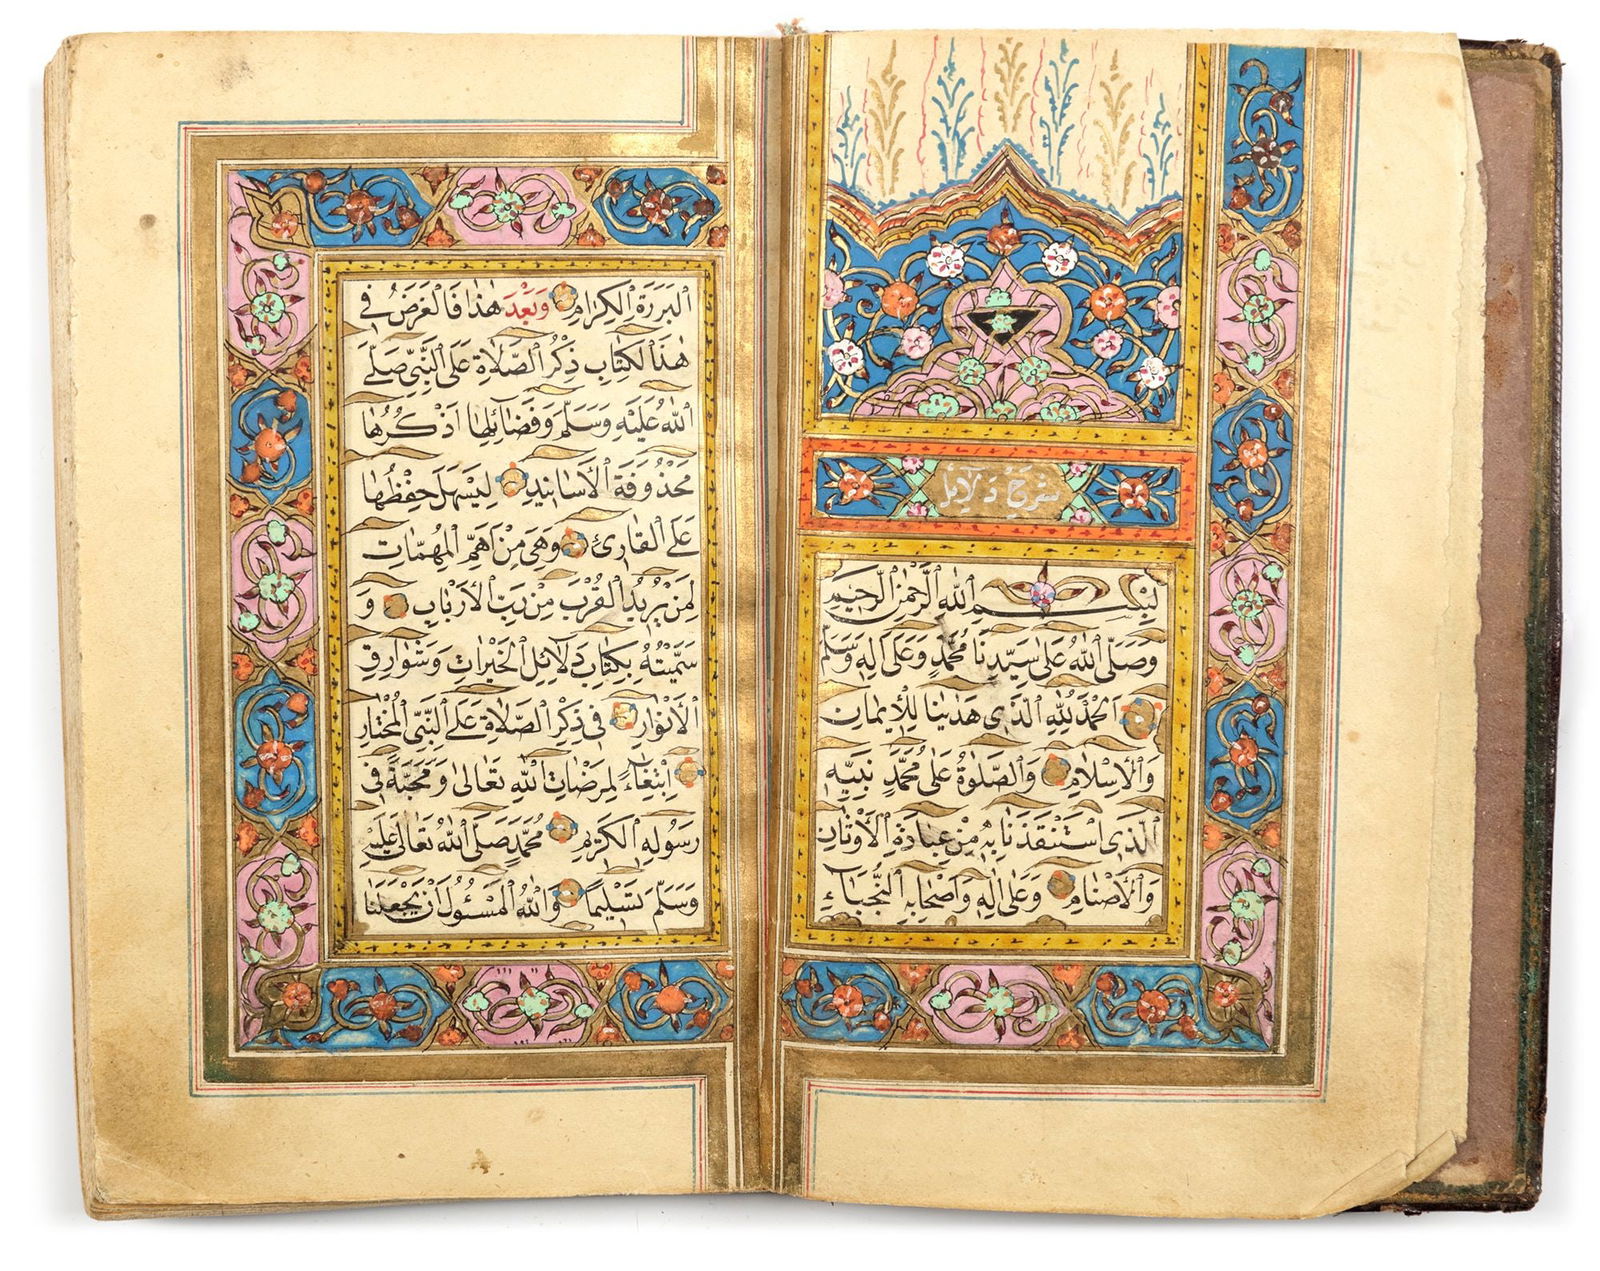 شرح دلايل
بِسْمِ اللهِ الرَّحْمٰنِ الرَّحِيمِ
وَصَلَّى اللهُ عَلٰى سَيِّدِنَا مُحَمَّدٍ وَعَلٰى اٰلِهِ وَسَلَّمَ
اَلْحَمْدُ لِلّٰهِ الَّذِي هَدٰينَا لِلْاِيمَانِ
وَالْاِسْلَامِ وَالصَّلٰوةُ عَلٰى مُحَمَّدٍ نَبِيِّهِ
الَّذِي اسْتَنْقَذَنَا بِهِ مِنْ عِبَادَةِ الْاَوْثَانِ
وَالْاَصْنَامِ وَعَلٰى اٰلِهِ وَاَصْحَابِهِ النُّجَبَاءِ
الْبَرَرَةِ الْكِرَامِ وَبَعْدَ هٰذَا فَالْغَرَضُ فِي
هٰذَا الْكِتَابِ ذِكْرُ الصَّلَاةِ عَلَى النَّبِيِّ صَلَّى
اللهُ عَلَيْهِ وَسَلَّمَ وَفَضَائِلِهَا اَذْكُرُهَا
مَحْذُوفَةَ الْاَسَانِيدِ لِيَسْهُلَ حِفْظُهَا
عَلَى الْقَارِئِ وَهِيَ مِنْ اَهَمِّ الْمُهِمَّاتِ
لِمَنْ يُرِيدُ الْقُرْبَ مِنْ رَبِّ الْاَرْبَابِ وَ
سَمَّيْتُهُ بِكِتَابِ دَلَائِلِ الْخَيْرَاتِ وَشَوَارِقِ
الْاَنْوَارِ فِي ذِكْرِ الصَّلَاةِ عَلَى النَّبِيِّ الْمُخْتَارِ
اِبْتِغَاءً لِمَرْضَاتِ اللهِ تَعَالٰى وَمَحَبَّةً فِي
رَسُولِهِ الْكَرِيمِ مُحَمَّدٍ صَلَّى اللهُ تَعَالٰى عَلَيْهِ
وَسَلَّمَ تَسْلِيمًا وَاللهُ الْمَسْئُولُ اَنْ يَجْعَلَنَا